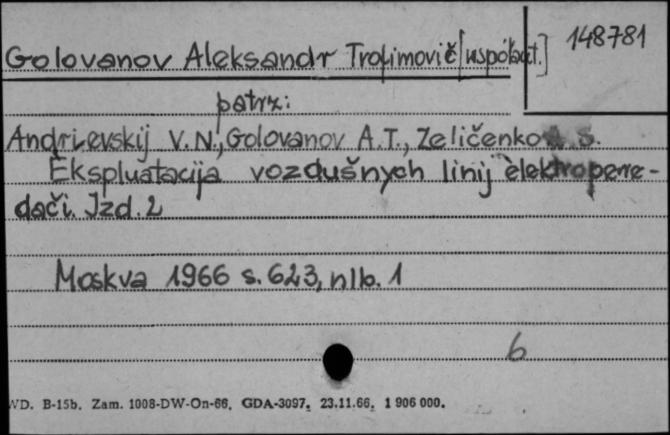 Golovanov Aleksandr Trofimovič [współaut.]
148781
patrz:
Andrievskij V.N., Golovanov A.T., Zeličenko A. S.
Èkspluatacija vozdušnych linij èlektropere-
dači. Izd. 2
Moskva 1966 s. 623, nlb. 1
6
WD. B-15b. Zam. 1008-DW-On-66. GDA-3097. 23.11.66. 1 906 000.